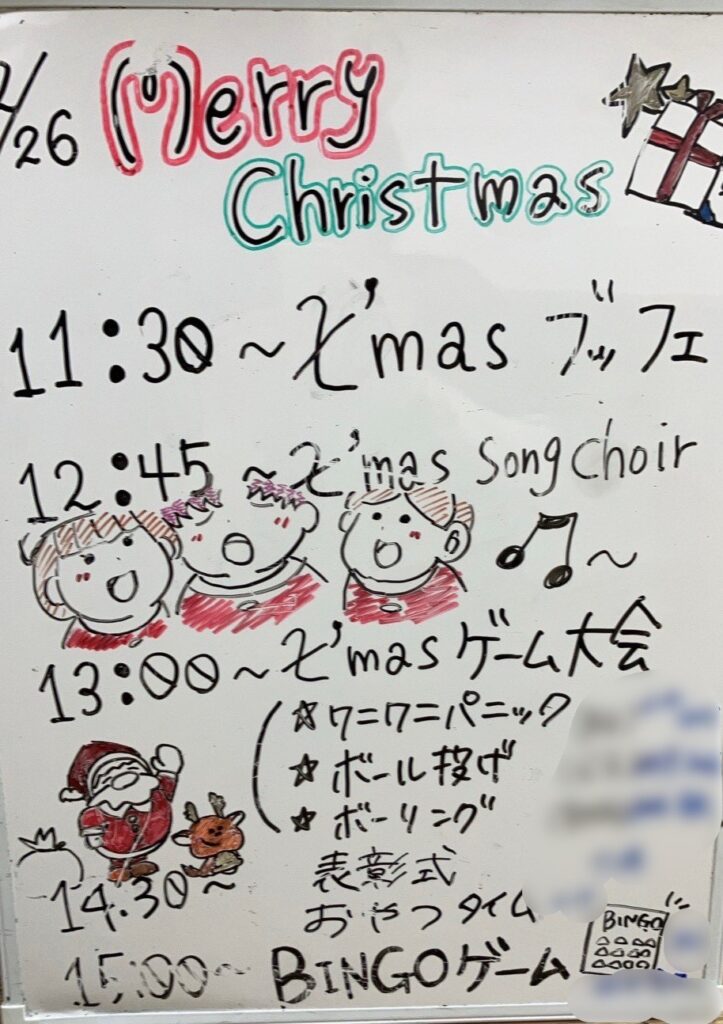 /26 Merry
Christmas
11:30～X'mas ブッフェ
12:45～X'mas Song Choir
13:00～X'mas ゲーム大会
☆ワニワニパニック
☆ボール投げ
☆ボーリング
14:30～ 表彰式
おやつタイム
15:00～ BINGOゲーム
BINGO